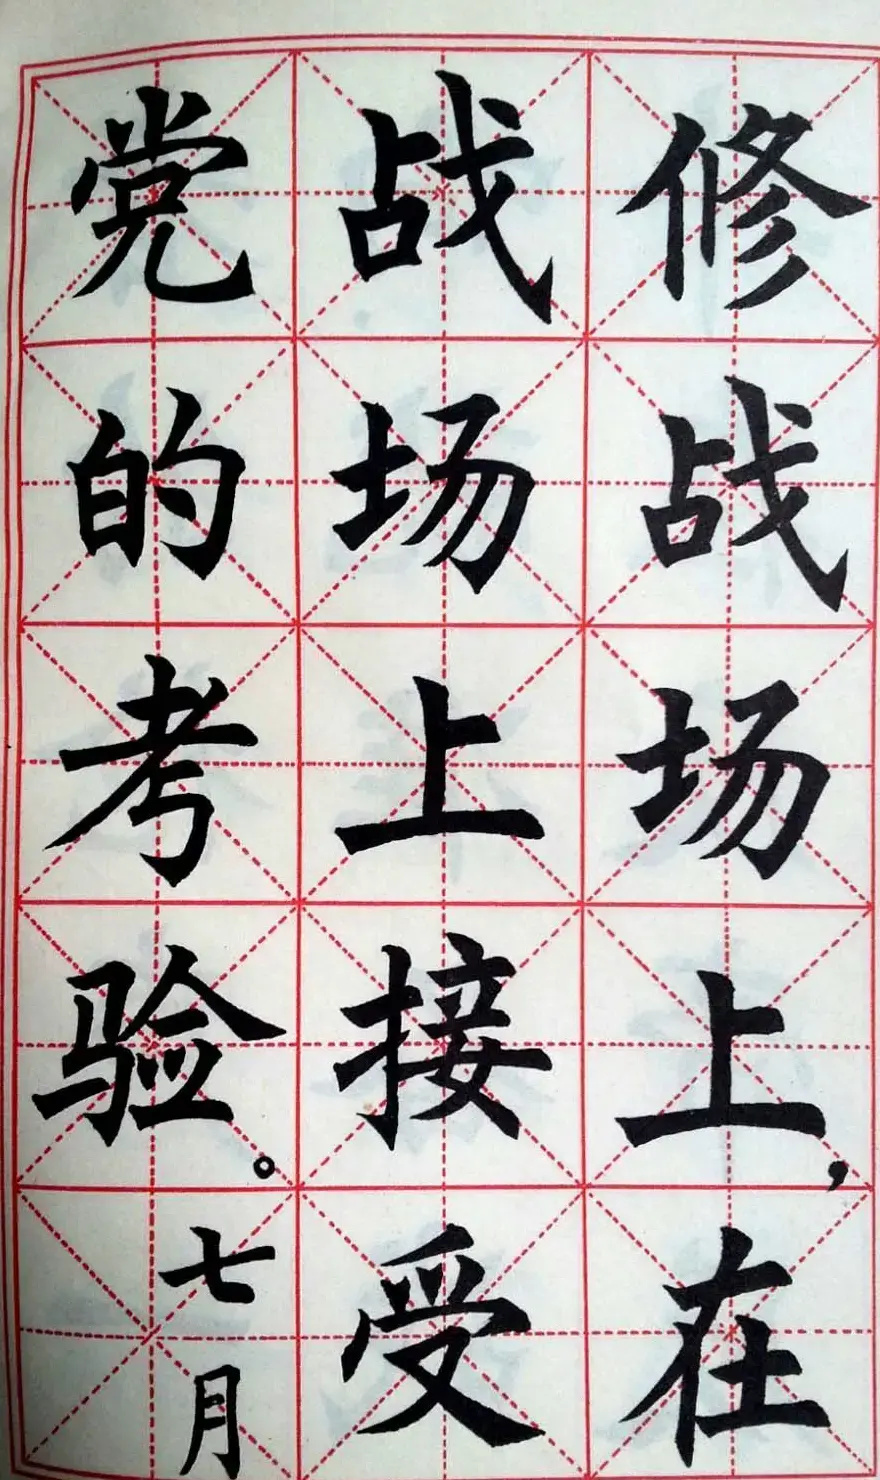 修战场上，在
战场上接受
党的考验。
七月